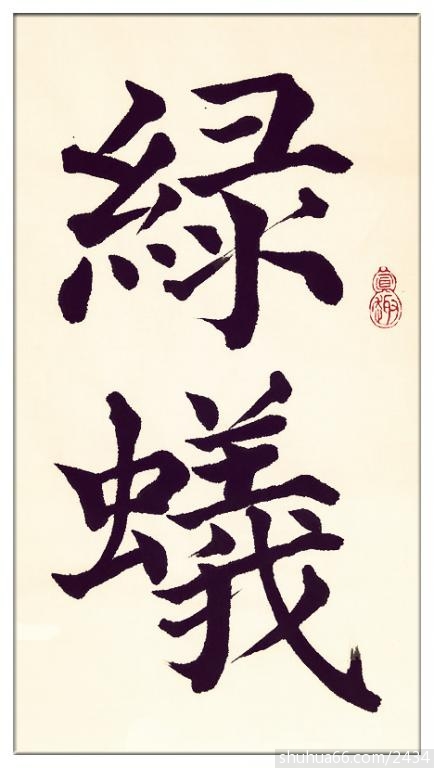 綠蟻
真趣
shuhua66.com/2434